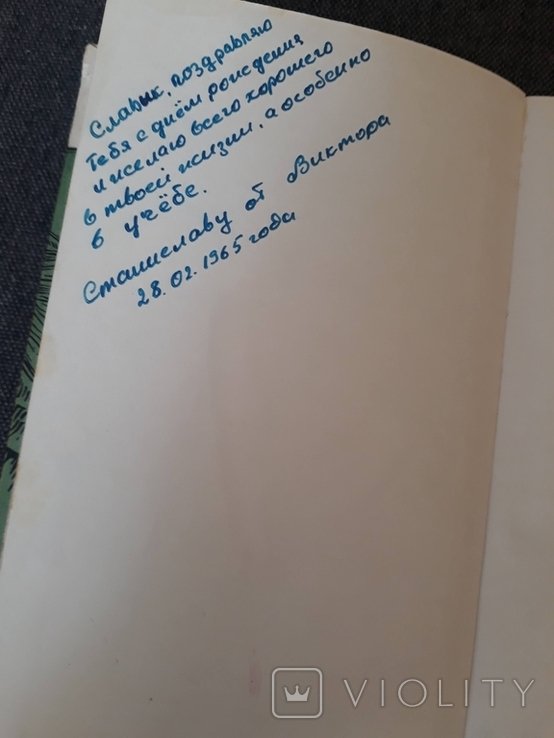 Славик, поздравляю
Тебя с днём рождения
и желаю всего хорошего
в твоей жизни, а особенно
в учёбе.
Станиславу от Виктора
28.02.1965 года
VIOLITY